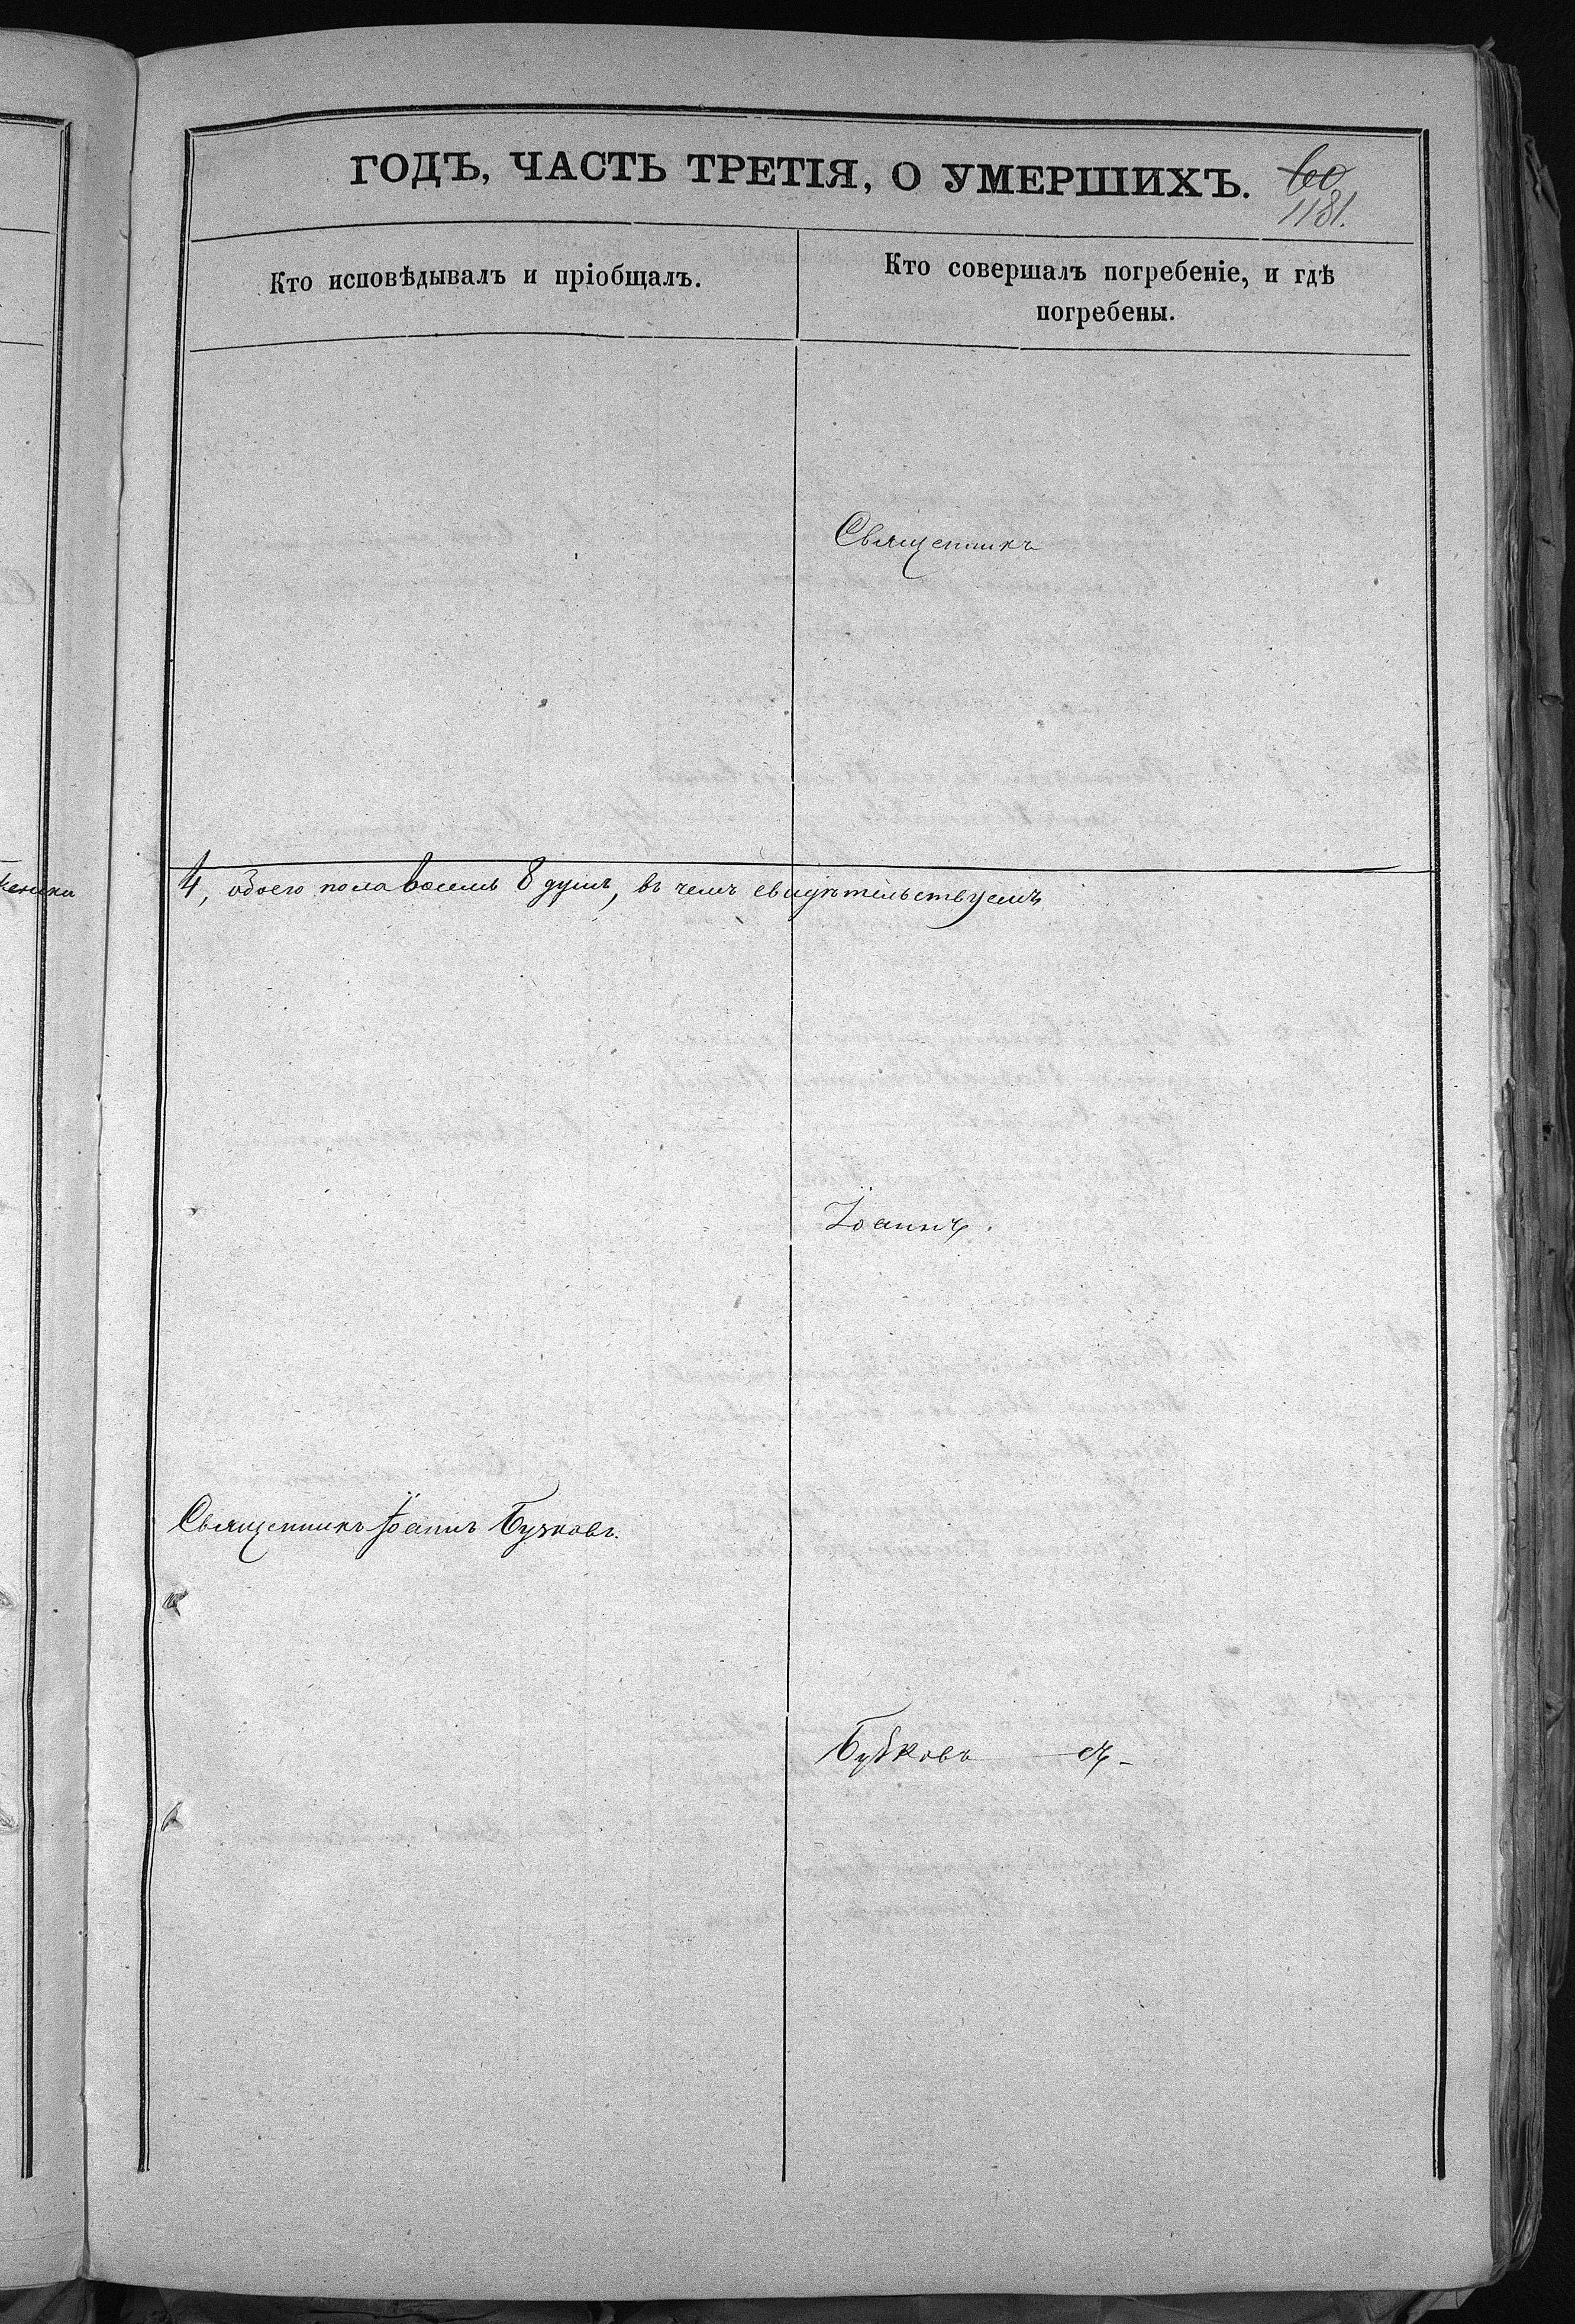 ГОДЪ, ЧАСТЬ ТРЕТІЯ, О УМЕРШИХЪ.
1181.
Кто исповѣдывалъ и пріобщалъ.
Кто совершалъ погребеніе, и гдѣ
погребены.
Священникъ
4, обоего пола восемь 8 душъ, въ чемъ свидѣтельствуемъ
Іоаннъ.
Священникъ Іоаннъ Бузковъ.
Бузковъ